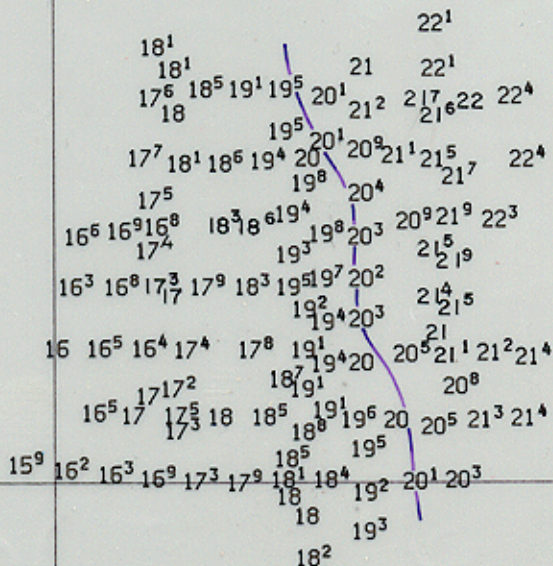 22¹
18¹
18¹ 21 22¹
17⁶ 18⁵ 19¹ 19⁵ 20¹ 21⁷ 22 22⁴
18 21² 21⁶
19⁵ 20¹
17⁷ 18¹ 18⁶ 19⁴ 20 20⁹ 21¹ 21⁵ 22⁴
19⁸ 21⁷
17⁵ 20⁴
16⁶ 16⁹ 16⁸ 18³ 18⁶ 19⁴ 19⁸ 20³ 20⁹ 21⁹ 22³
17⁴ 19³ 21⁵ 21⁹
16³ 16⁸ 17³ 17⁹ 18³ 19⁵ 19⁷ 20²
17 21⁴ 21⁵
19² 19⁴ 20³
21
16 16⁵ 16⁴ 17⁴ 17⁸ 19¹ 19⁴ 20 20⁵ 21¹ 21² 21⁴
18⁷ 19¹ 20⁸
17 17²
16⁵ 17 17⁵ 18 18⁵ 19¹ 19⁶ 20 20⁵ 21³ 21⁴
17³ 18⁸
18⁵ 19⁵
15⁹ 16² 16³ 16⁹ 17³ 17⁹ 18¹ 18⁴ 19² 20¹ 20³
18
18 19³
18²